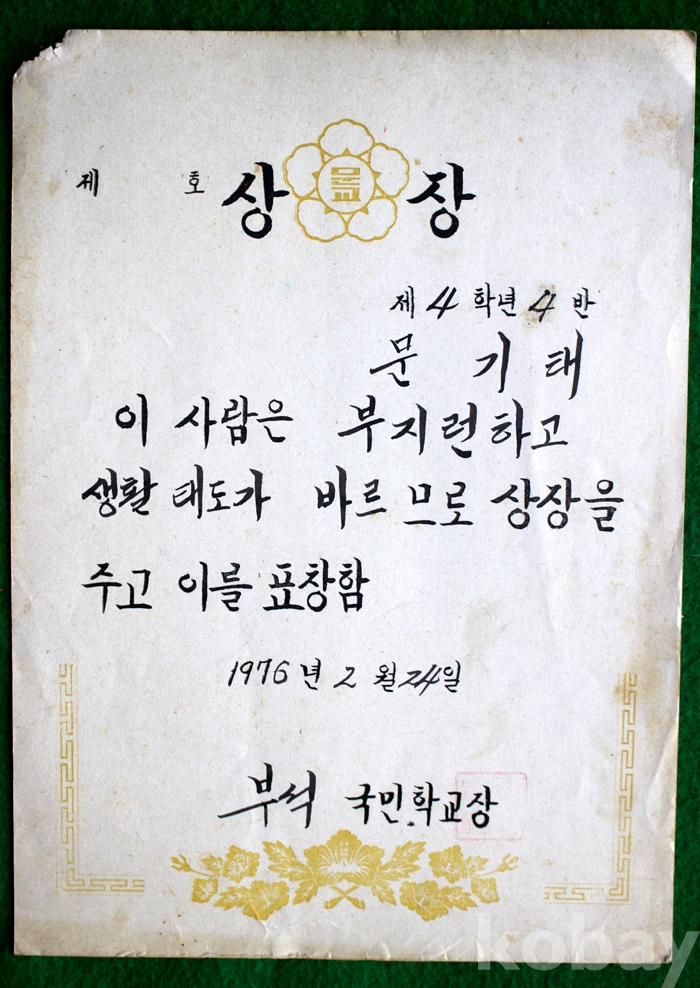 제 호 상 문교 장
제 4 학년 4 반
문 기 태
이 사람은 부지런하고
생활 태도가 바르므로 상장을
주고 이를 표창함
1976년 2월 24일
부석 국민학교장
kobay